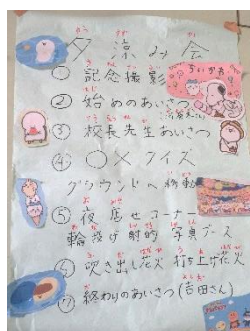 夕涼み会
① 記念撮影
② 始めのあいさつ
③ 校長先生あいさつ
④ ○×クイズ
グラウンドへ移動
⑤ 夜店コーナー
輪投げ 射的 写真ブース
⑥ 吹き出し花火 打ち上げ花火
⑦ 終わりのあいさつ(吉田さん)